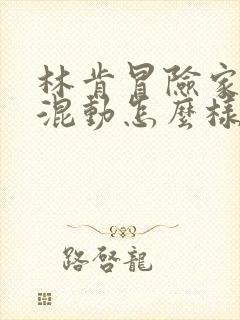 林肯冒險家
混動怎麼樣
路啓龍